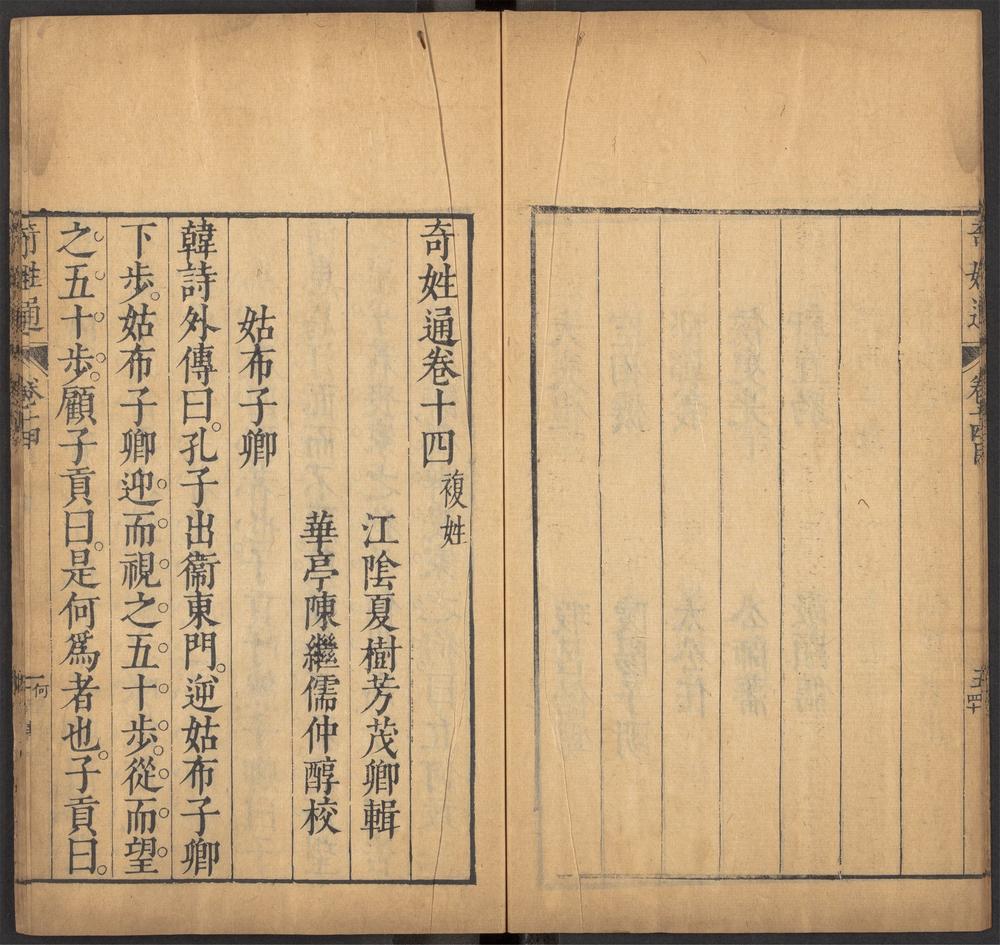 奇姓通卷十四 複姓
江陰夏樹芳茂卿輯
華亭陳繼儒仲醇校
姑布子卿
韓詩外傳曰。孔子出衞東門。逆姑布子卿
下步。姑布子卿迎而視之五十步。從而望
之五十步。顧子貢曰。是何爲者也。子貢曰。
奇姓通 卷十四